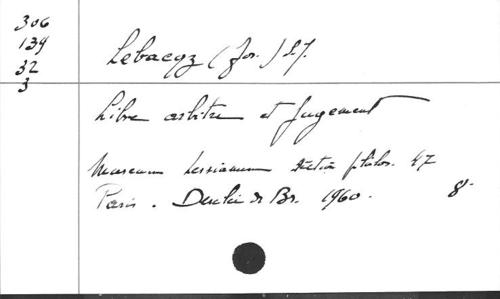 306
139
32
3
Lebacqz (Jos.) S.J.
Libre arbitre et jugement
Museum Lessianum Section philos. 47
Paris. Desclée de Br. 1960. 8°